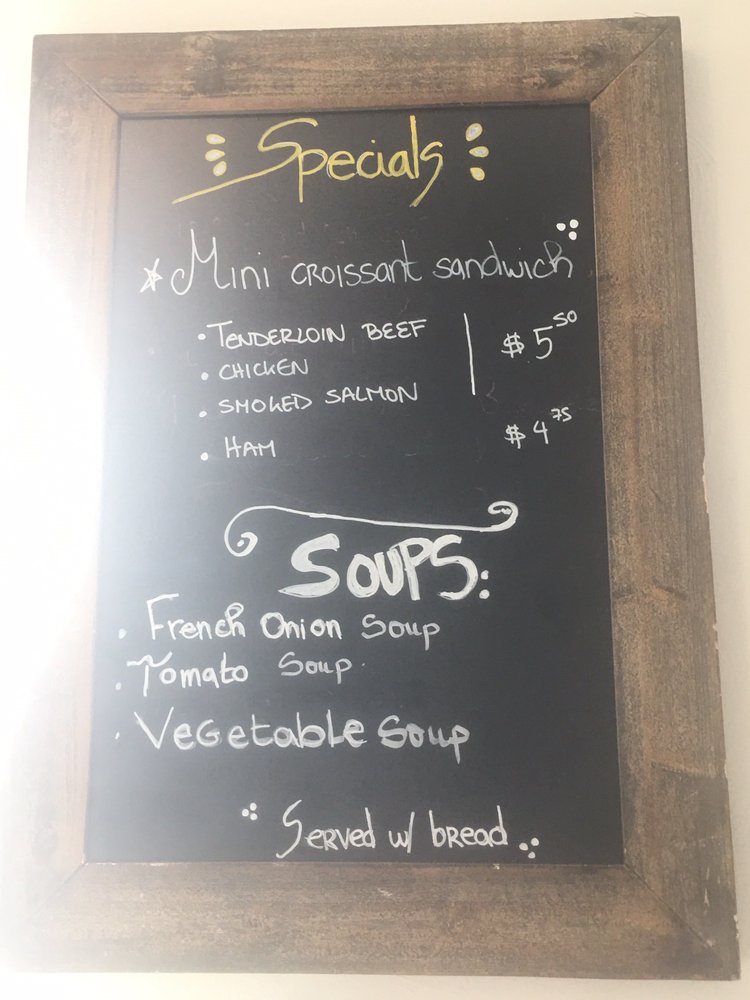 Specials
Mini croissant sandwich
• TENDERLOIN BEEF
• CHICKEN
• SMOKED SALMON
$ 5 50
• HAM
$ 4 75
SOUPS:
• French Onion Soup
• Tomato Soup
• Vegetable Soup
Served w/ bread